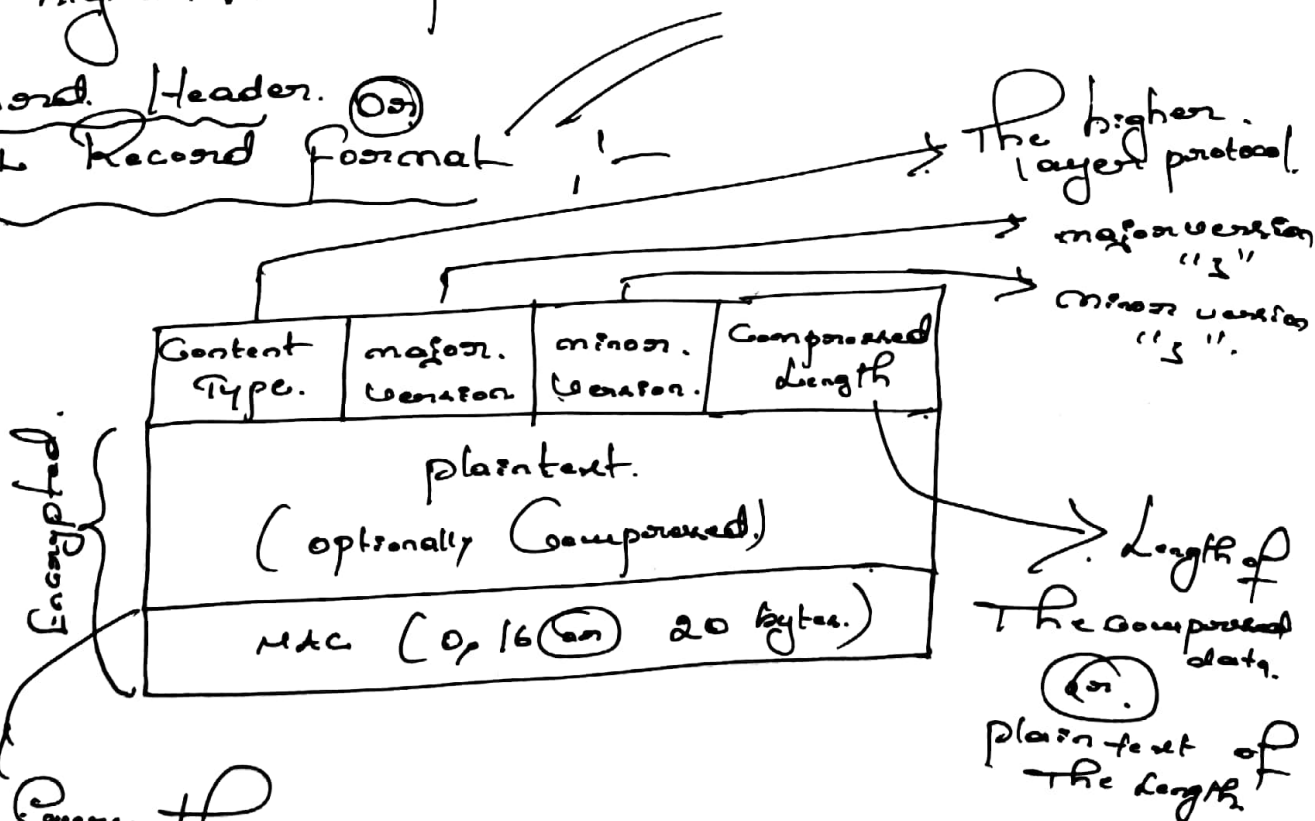 Header. (or)
Record Format
The higher.
layer protocol.
major version
"3"
minor version
"3".
Content
Type.
major.
version
minor.
version.
Compressed
Length
Encrypted.
plaintext.
(optionally Compressed)
MAC (0, 16 (or) 20 bytes.)
Length of
The compressed
data.
(or.)
plain text of
The Length